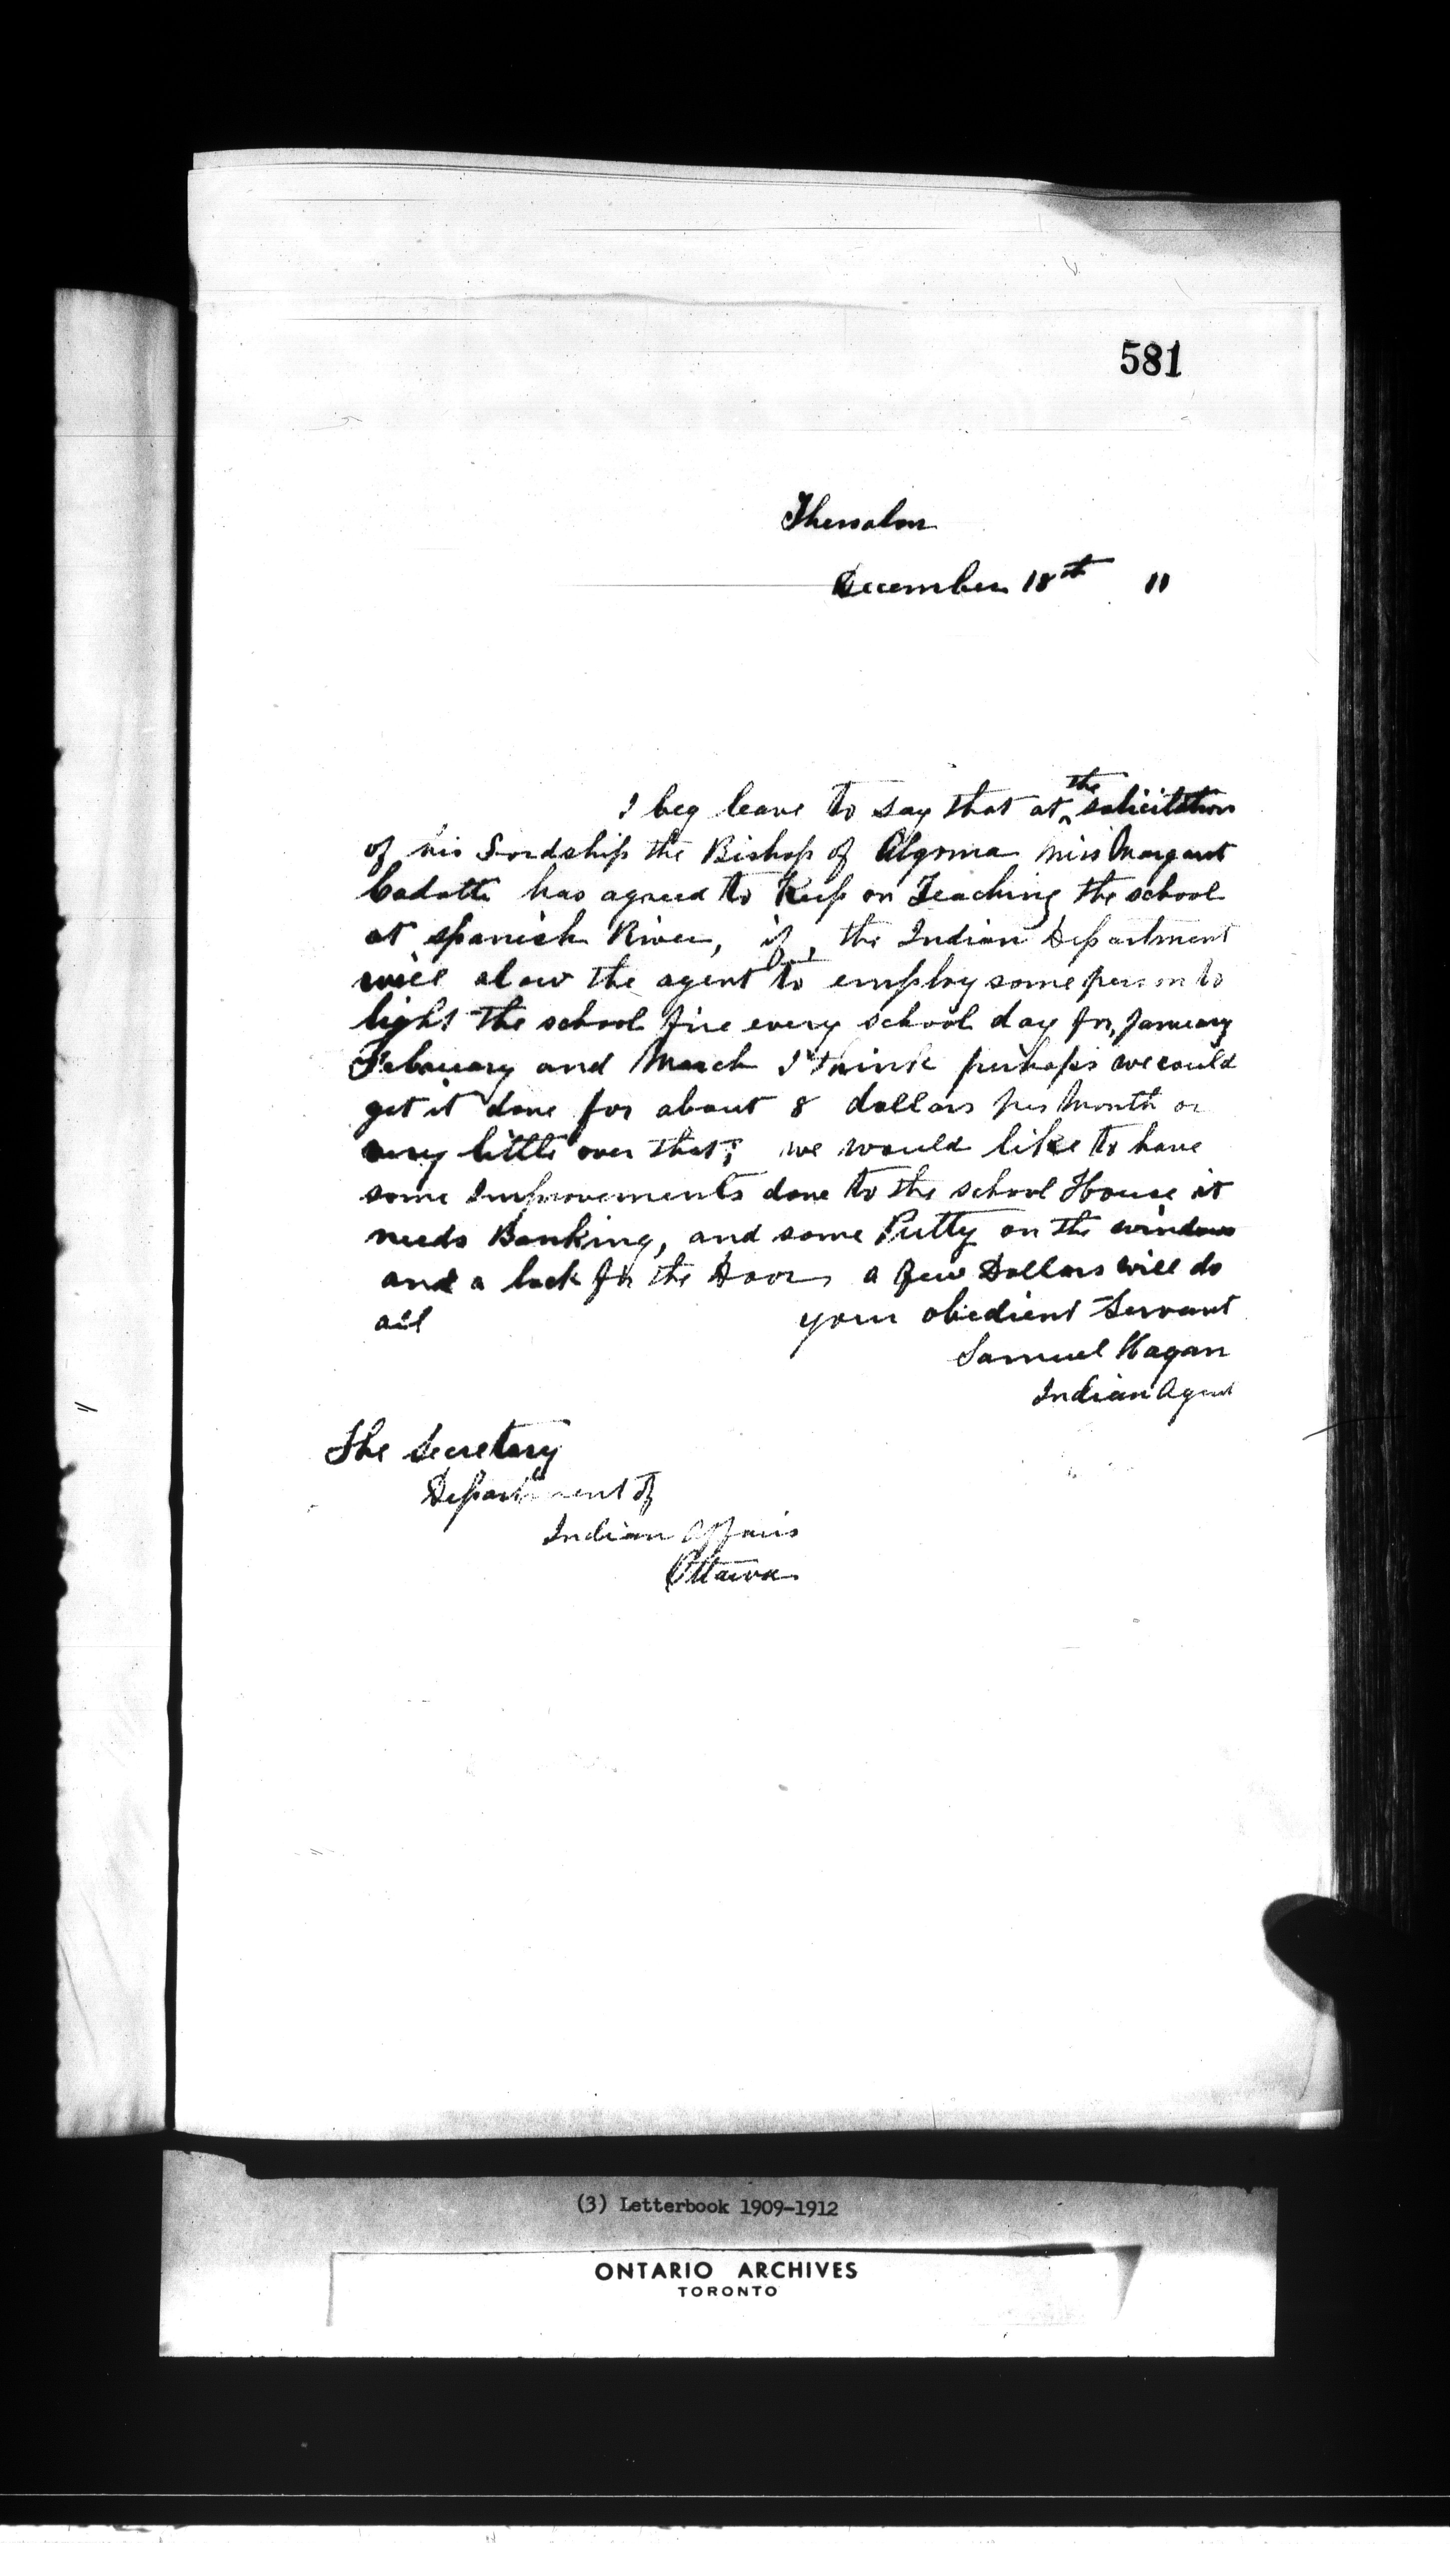 581
Thessalon
December 18th 11
I beg leave to say that at the solicitation
of his Lordship the Bishop of Algoma Miss Margaret
Cadotte has agreed to Keep on Teaching the school
at Spanish River, if, the Indian Department
will alow the agent to employ some person to
light the school fire every school day for January
February and March I think perhaps we could
get it done for about 8 dollars per Month or
very little over that; we would like to have
some Improvements done to the school House it
needs Banking, and some Putty on the windows
and a lock for the Door, a few Dollars will do
all your obedient Servant
Samuel Hagan
Indian Agent
The Secretary
Department of
Indian Affairs
Ottawa
(3) Letterbook 1909-1912
ONTARIO ARCHIVES
TORONTO